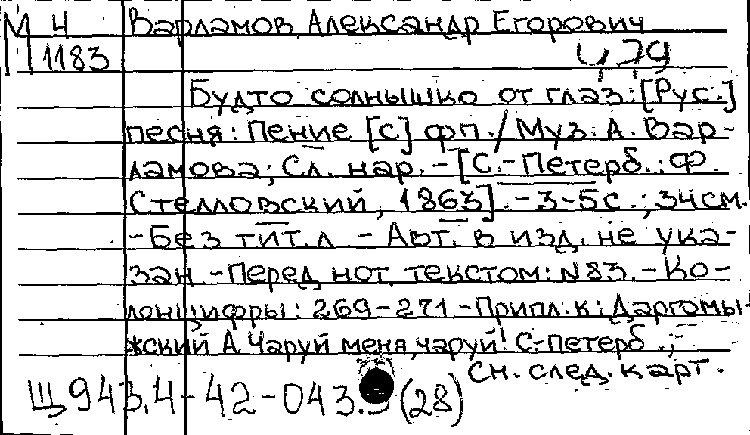 М 4 Варламов Александр Егорович
1183
Будто солнышко от глаз: [Рус.]
песня: Пение [с] фп. / Муз. А. Вар-
ламова; Сл. нар. - [С.-Петерб.: Ф.
Стелловский, 1863]. - 3-5с.; 34см.
- Без тит. л - Авт. в изд. не ука-
зан. - Перед нот. текстом: N83. - Ко-
лонцифры: 269-271 - Припл. к: Даргомы-
жский А. Чаруй меня, чаруй! С-петерб.;
См. след. карт.
Щ943.4-42-043. (28)